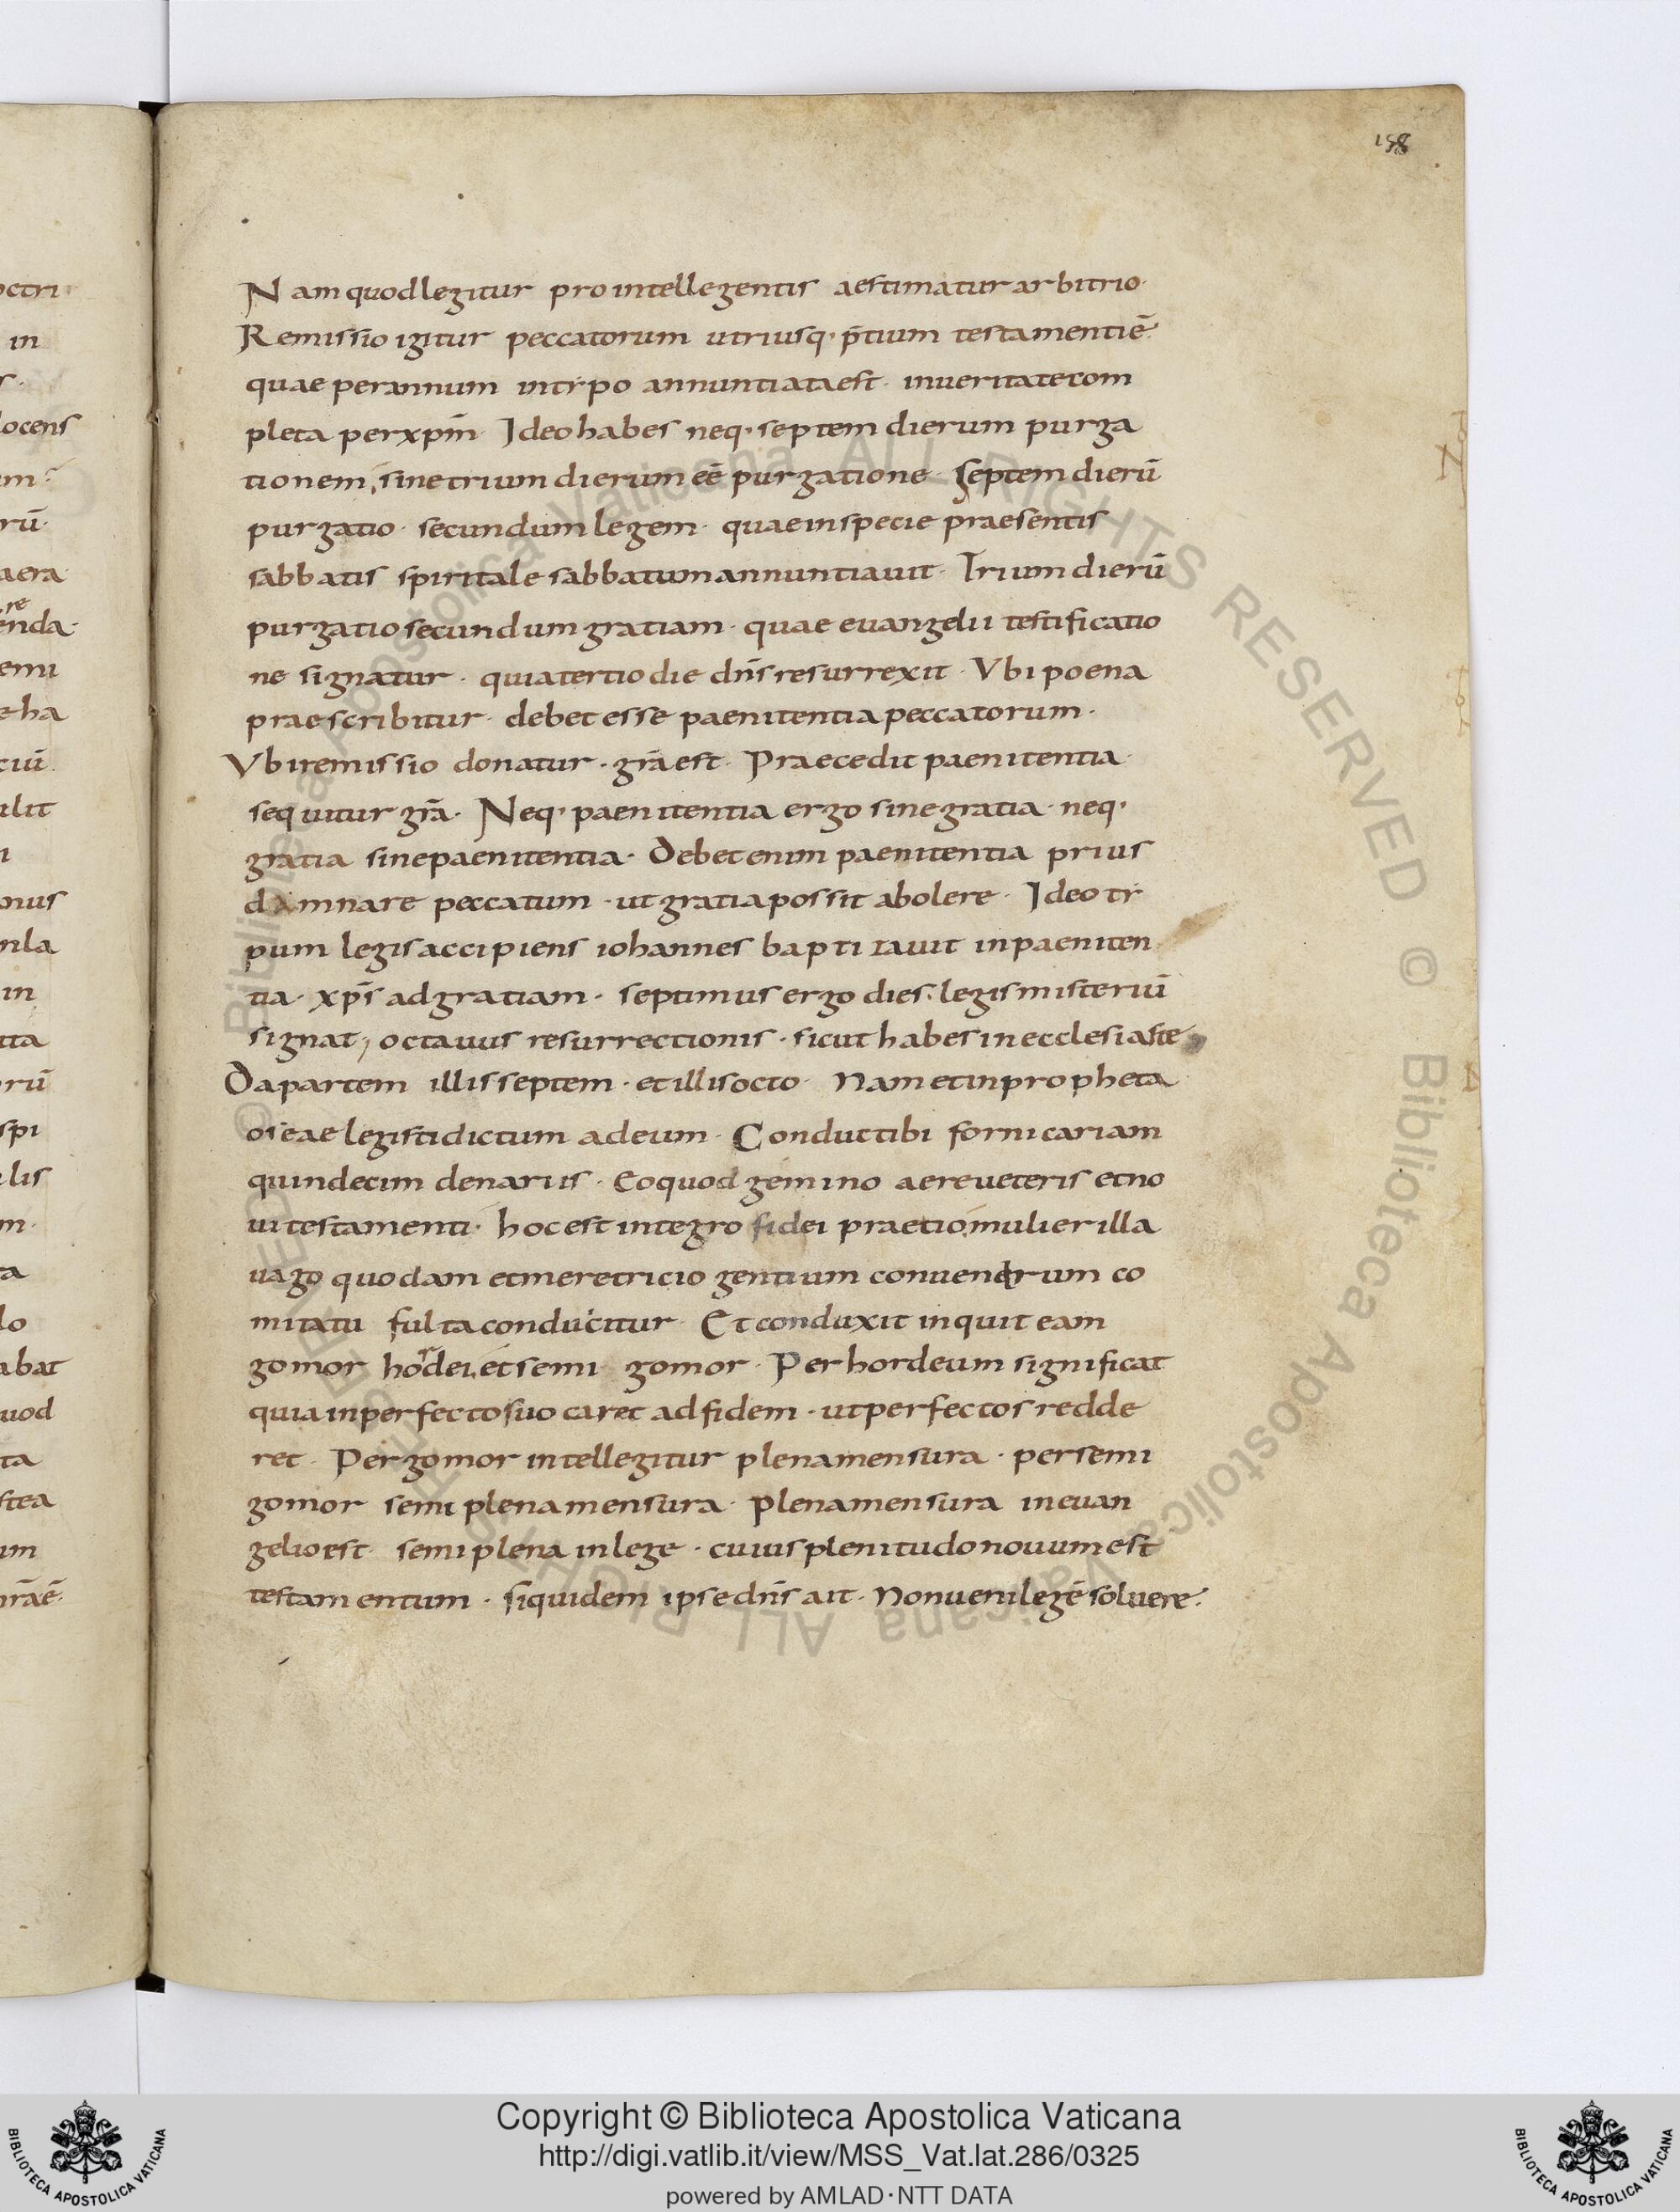 158
Nam quod legitur pro intellegentis aestimatur arbitrio·
Remissio igitur peccatorum utriusq· p̄tium testamenti ē·
quae per annum in tẏpo annuntiata est· in ueritate com
pleta per xp̄m· Ideo habes neq· septem dierum purga
tionem, sine trium dierum eē purgatione· Septem dierū
purgatio· secundum legem· quae in specie praesentis
sabbatis spiritale sabbatum annuntiauit· Trium dierū
purgatio secundum gratiam· quae euangelii testificatio
ne signatur· quia tertio die dn̄s resurrexit· Vbi poena
praescribitur· debet esse paenitentia peccatorum·
Vbi remissio donatur· gr̄a est· Praecedit paenitentia·
sequitur gr̄a· Neq· paenitentia ergo sine gratia· neq·
gratia sine paenitentia· Debet enim paenitentia prius
damnare peccatum· ut gratia possit abolere· Ideo tẏ
pum legis accipiens iohannes baptizauit in paeniten
tia· xp̄s ad gratiam· septimus ergo dies· legis misteriū
signat, octauus resurrectionis· sicut habes in ecclesiaste
Da partem illis septem· et illis octo· Nam et in propheta
oseae legisti dictum ad eum· Conduc tibi fornicariam
quindecim denariis· Eo quod gemino aere ueteris et no
ui testamenti· hoc est integro fidei praetio, mulier illa
uago quodam et meretricio gentium conuenarum co
mitatu fulta conducitur· Et conduxit inquit eam
gomor hordei, et semi gomor· Per hordeum significat
quia inperfectos uocaret ad fidem· ut perfectos redde
ret· Per gomor intellegitur plena mensura· per semi
gomor semiplena mensura· Plena mensura in euan
gelio est· semiplena in lege· cuius plenitudo nouum est
testamentum· siquidem ipse dn̄s ait· Non ueni legē soluere·
Copyright © Biblioteca Apostolica Vaticana
http://digi.vatlib.it/view/MSS_Vat.lat.286/0325
powered by AMLAD·NTT DATA
BIBLIOTECA APOSTOLICA VATICANA
BIBLIOTECA APOSTOLICA VATICANA